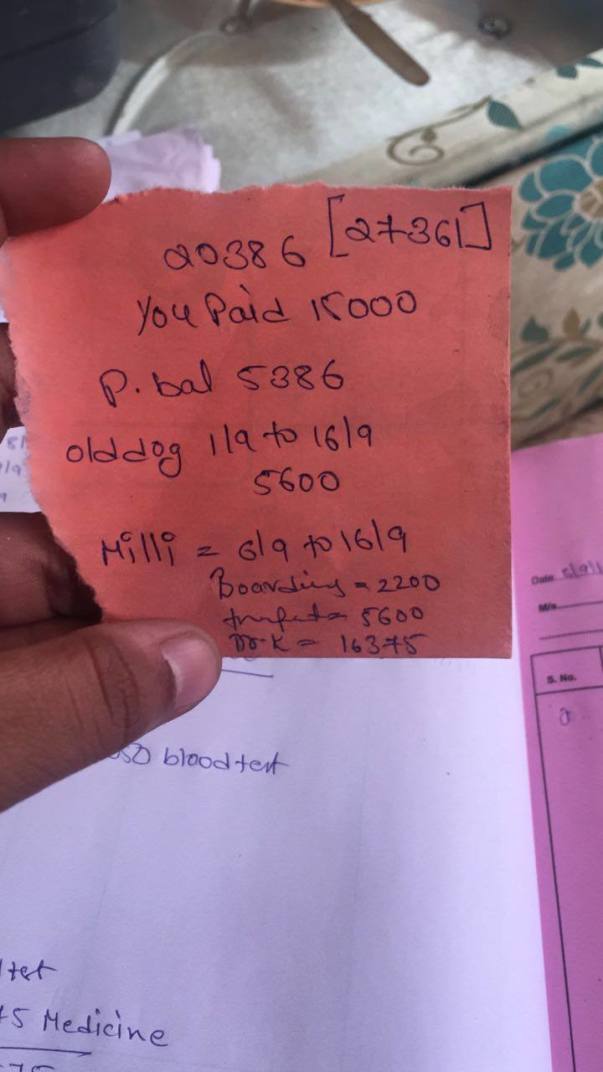 20386 [27361]
You Paid 15000
P. bal 5386
old dog 1/9 to 16/9
5600
Milli = 6/9 to 16/9
Boarding = 2200
= 5600
Dr. K = 16375
blood test
Date
M/s
S. No.
Medicine